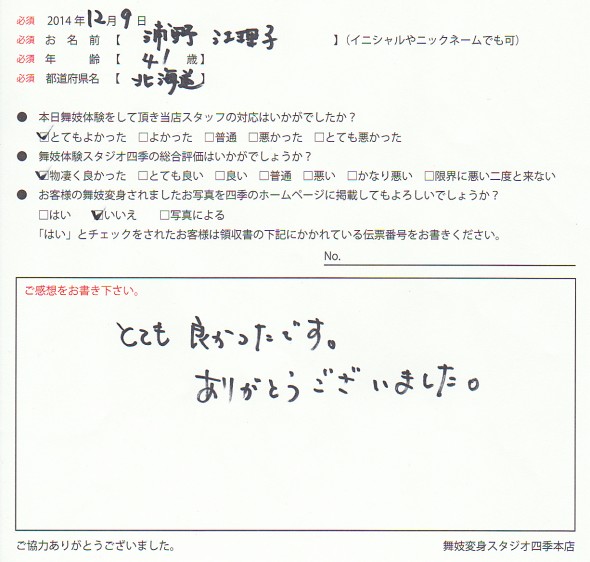 必須 2014年12月9日
必須 お名前【 浦野 江理子 】(イニシャルやニックネームでも可)
必須 年齢【 41 歳】
必須 都道府県名【 北海道 】
● 本日舞妓体験をして頂き当店スタッフの対応はいかがでしたか?
☑とてもよかった □よかった □普通 □悪かった □とても悪かった
● 舞妓体験スタジオ四季の総合評価はいかがでしょうか?
☑物凄く良かった □とても良い □良い □普通 □悪い □かなり悪い □限界に悪い二度と来ない
● お客様の舞妓変身されましたお写真を四季のホームページに掲載してもよろしいでしょうか?
□はい ☑いいえ □写真による
「はい」とチェックをされたお客様は領収書の下記にかかれている伝票番号をお書きください。
No.
ご感想をお書き下さい。
とても 良かったです。
ありがとうございました。
ご協力ありがとうございました。 舞妓変身スタジオ四季本店